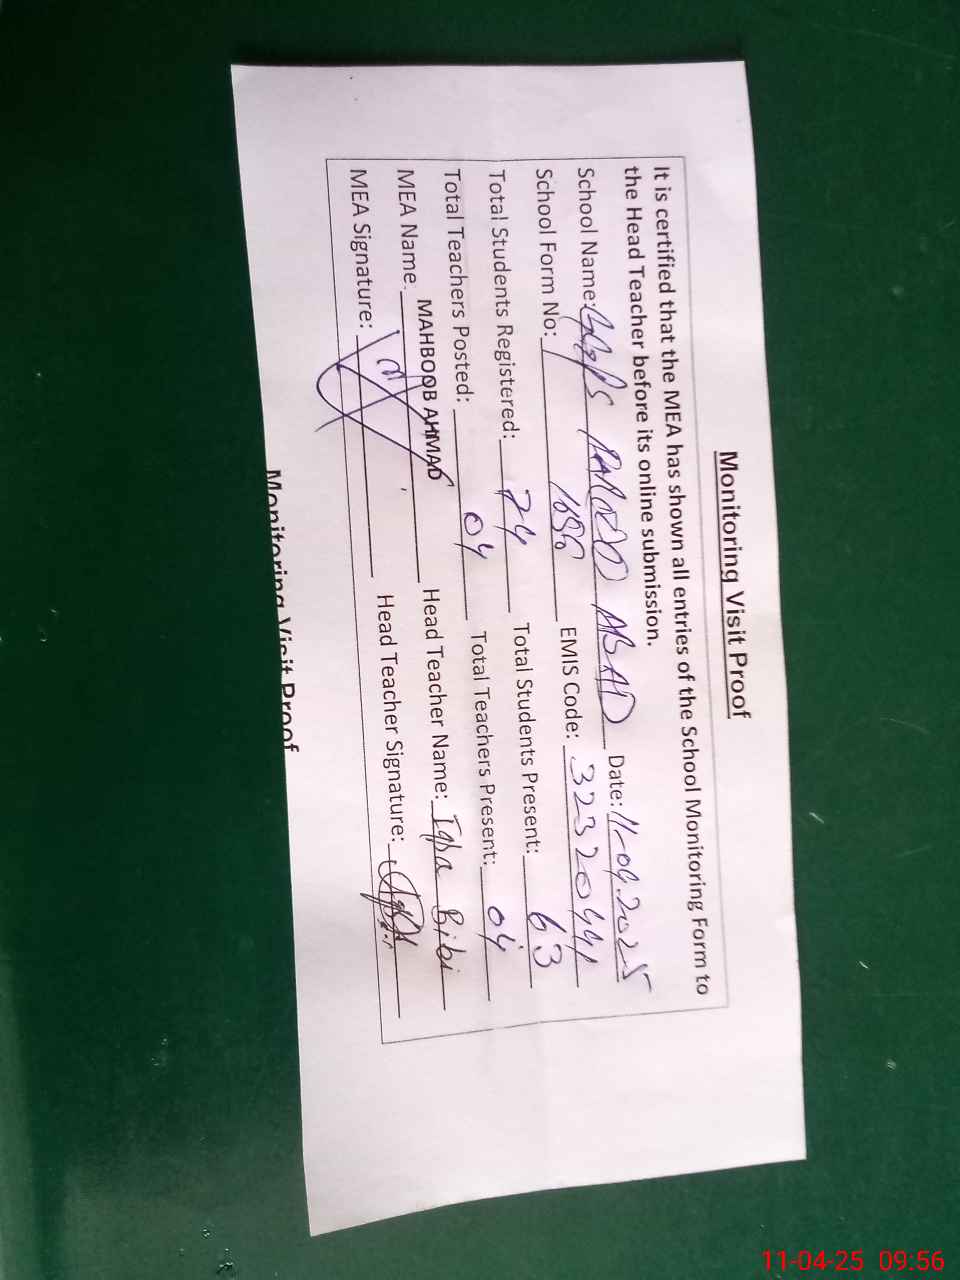 Monitoring Visit Proof
It is certified that the MEA has shown all entries of the School Monitoring Form to
the Head Teacher before its online submission.
School Name: GGPS AHMED ABAD Date: 11-04-2025
School Form No: 1686 EMIS Code: 32320441
Total Students Registered: 74 Total Students Present: 63
Total Teachers Posted: 04 Total Teachers Present: 04
MEA Name. MAHBOOB AHMAD Head Teacher Name: Iqba Bibi
MEA Signature: Head Teacher Signature:
Monitoring Visit Proof
11-04-25 09:56